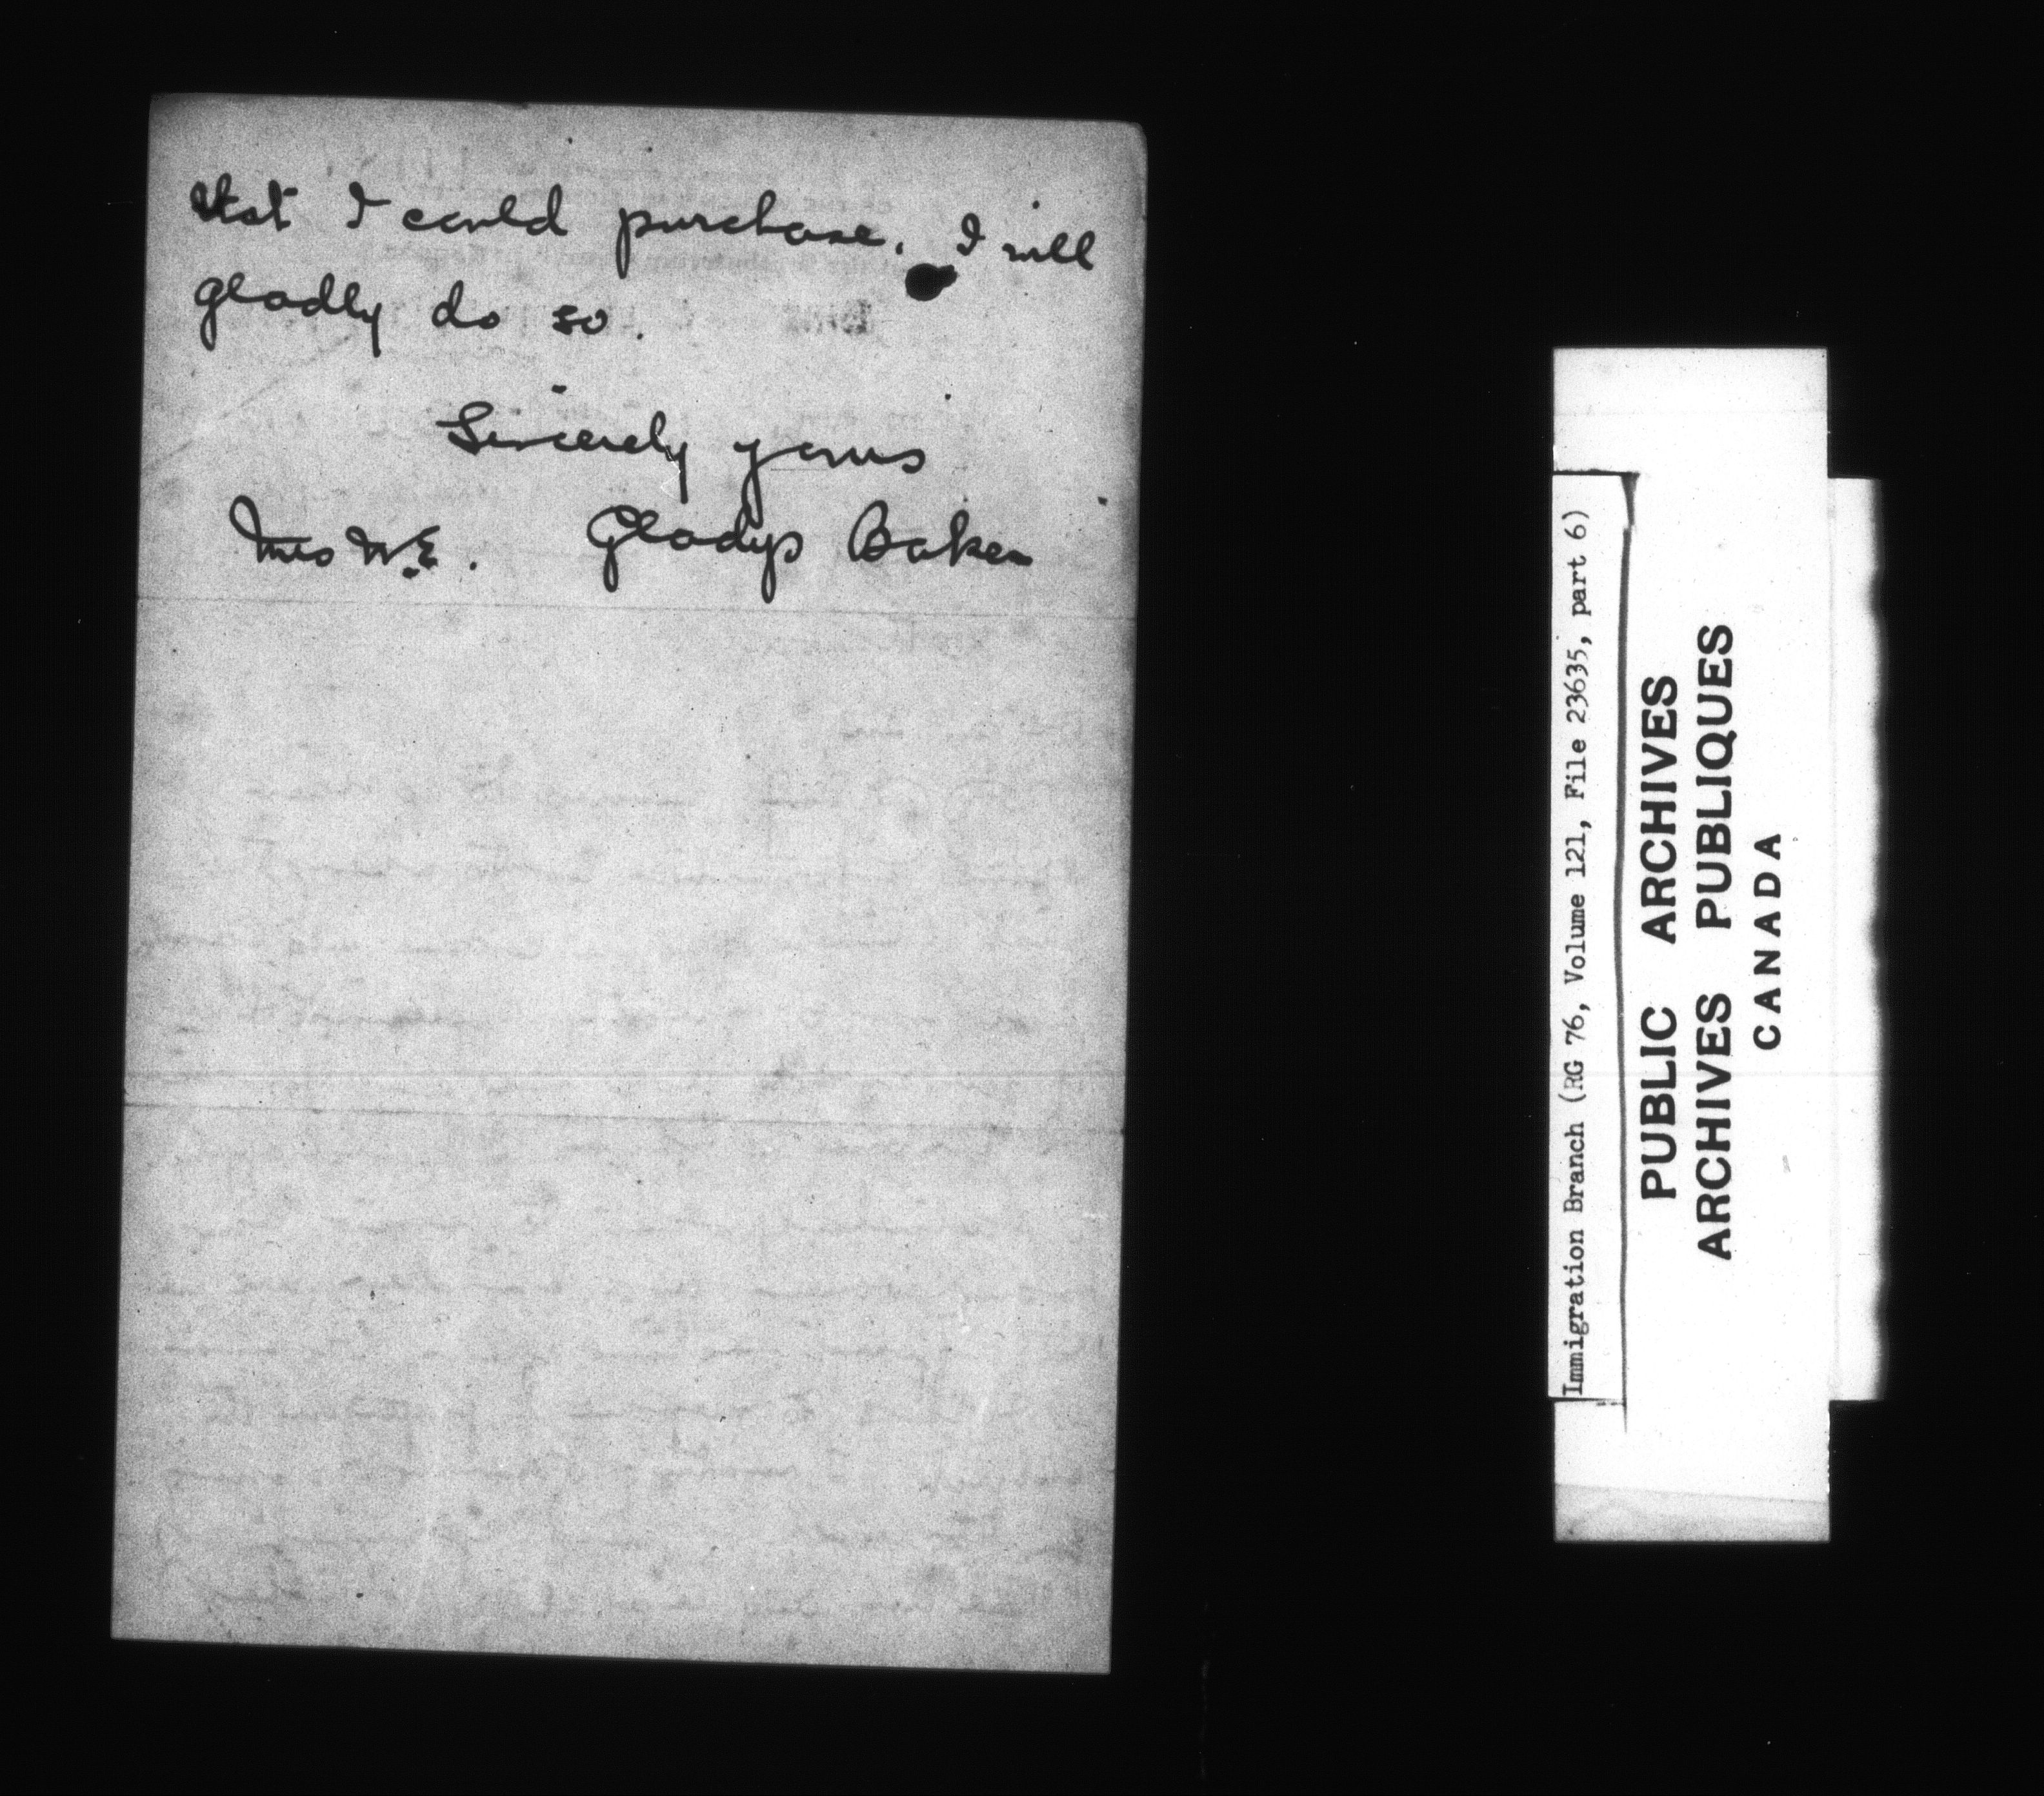 that I could purchase. I will
gladly do so.
Sincerely yours
Mrs W.E. Gladys Baker
Immigration Branch (RG 76, Volume 121, File 23635, part 6)
PUBLIC ARCHIVES
ARCHIVES PUBLIQUES
CANADA